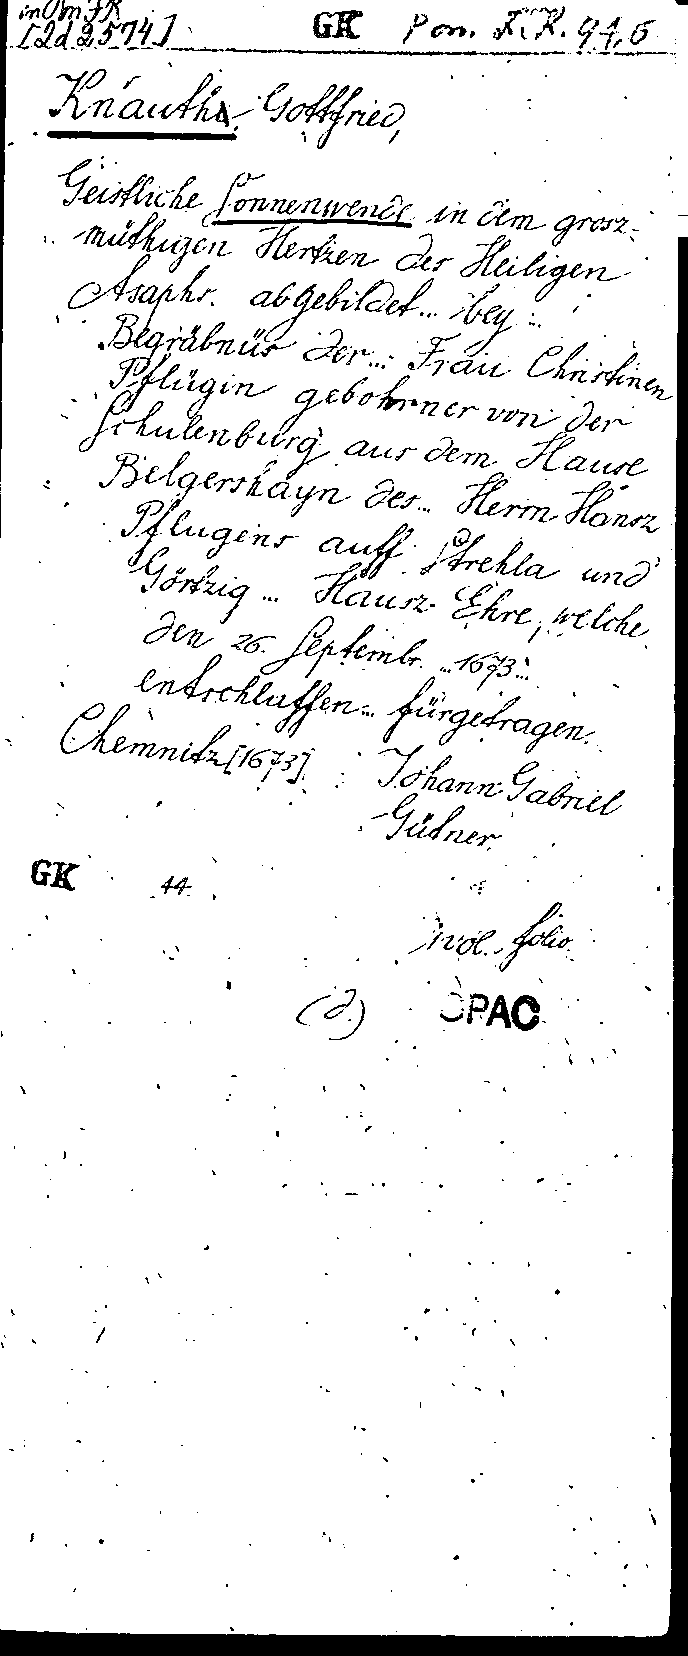 in Pon FK
[2d 2574] GK Pon. F.K. 94,6
Knauth, Gottfried,
Geistliche Sonnenwende in dem grosz-
müthigen Hertzen des Heiligen
Asaphs. abgebildet... bey...
Begräbnüs der... Frau Christinen
Pflügin gebohrner von der
Schulenburg aus dem Hause
Belgershayn des... Herrn Hansz
Pflugens auff Strehla und
Görtzig... Hausz-Ehre, welche
den 26. Septembr. ...1673...
entschlaffen... fürgetragen.
Chemnitz [1673] Johann Gabriel
Gütner.
GK 44
vol. folio
(d.) OPAC